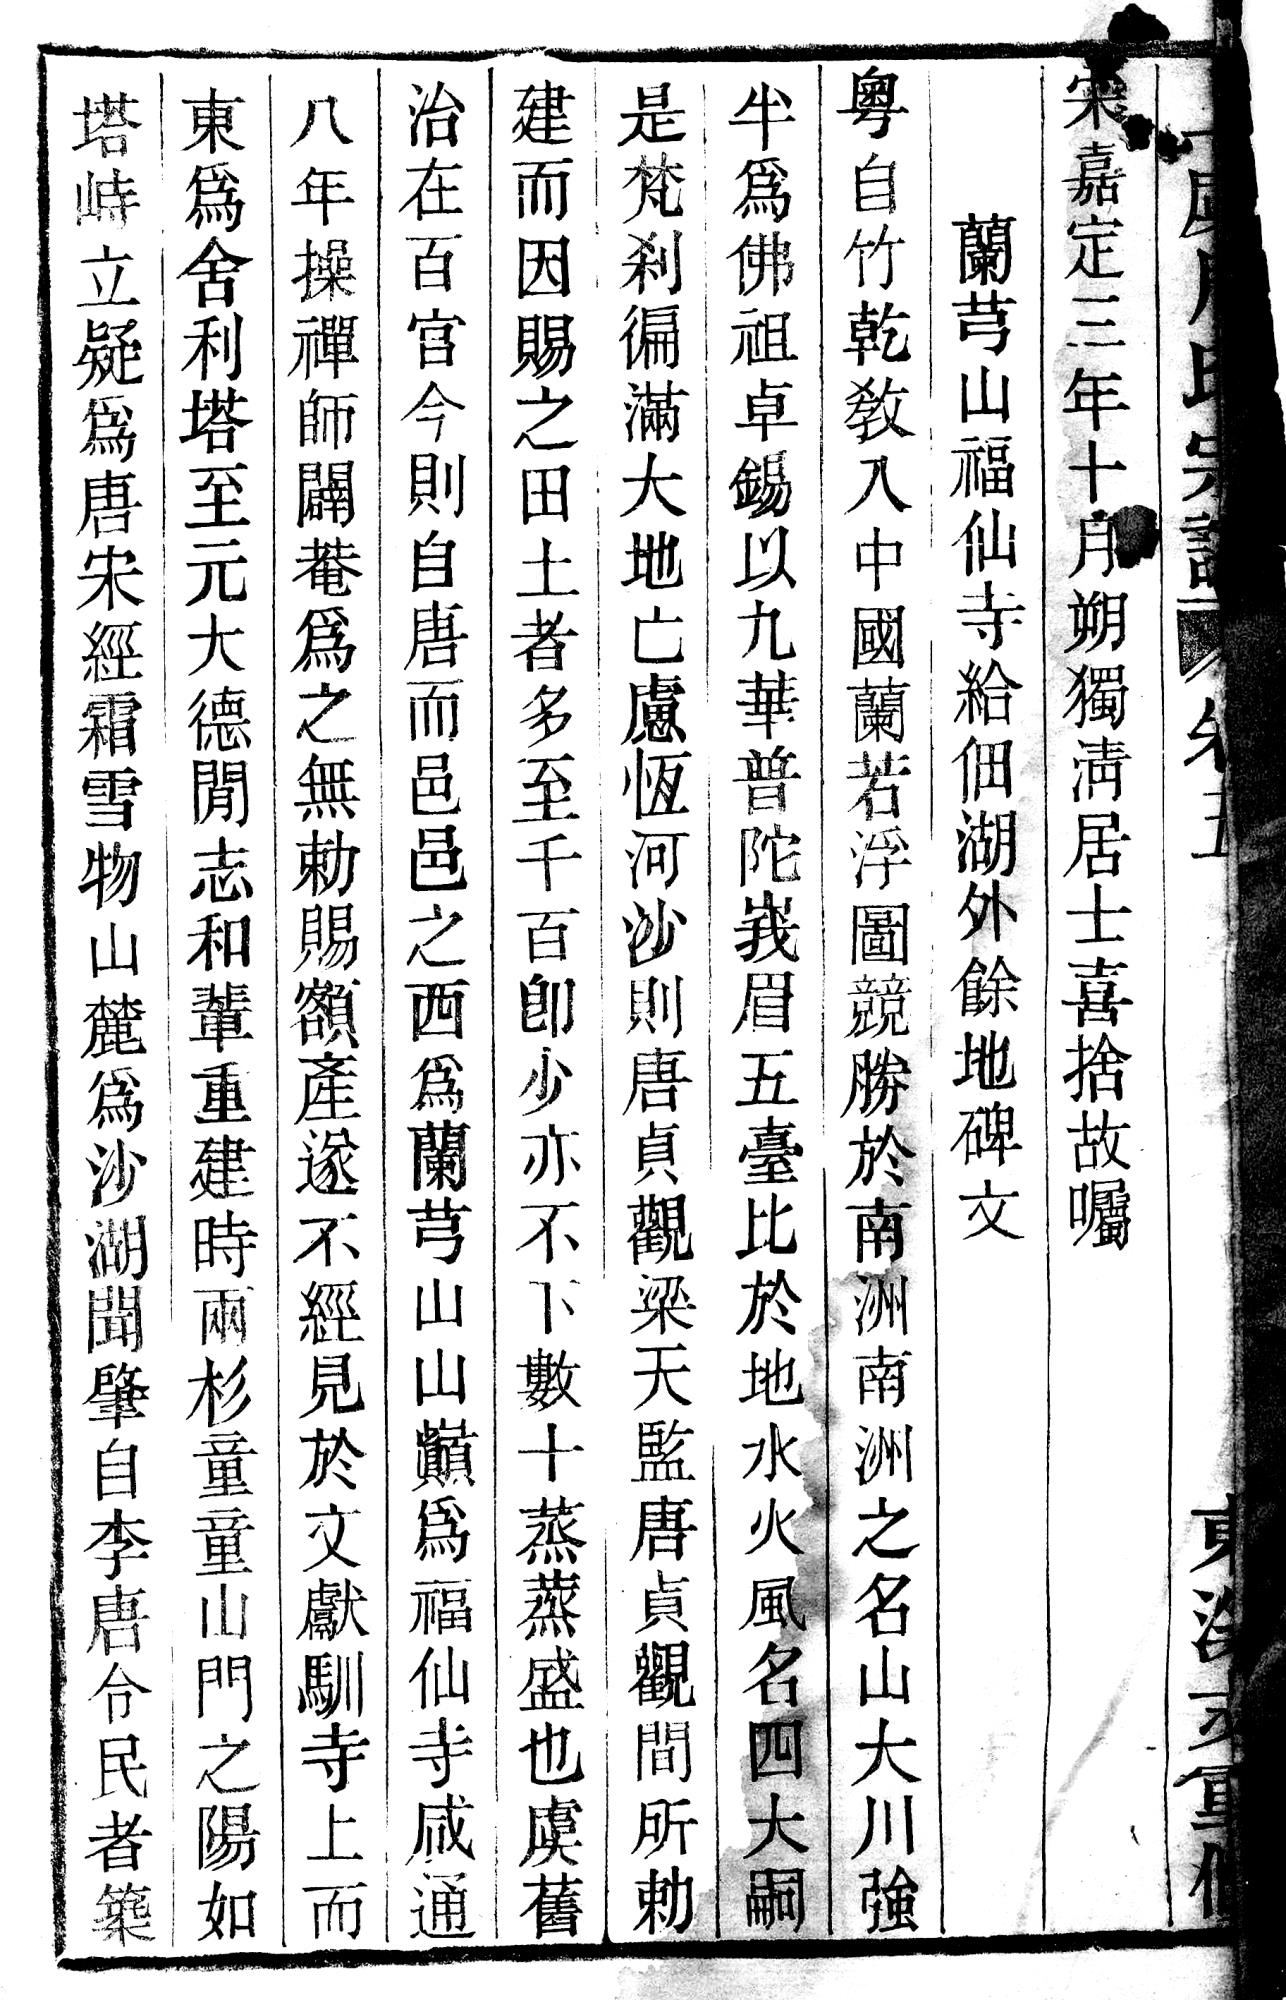 宋嘉定三年十月朔獨淸居士喜捨故囑
蘭芎山福仙寺給佃湖外餘地碑文
粤自竹乾敎入中國蘭若浮圖競勝於南洲南洲之名山大川強
半爲佛祖卓錫以九華普陀峩眉五臺比於地水火風名四大嗣
是梵刹徧滿大地亡慮恆河沙則唐貞觀梁天監唐貞觀間所勅
建而因賜之田土者多至千百卽少亦不下數十蒸蒸盛也虞舊
治在百官今則自唐而邑邑之西爲蘭芎山山巓爲福仙寺咸通
八年操禪師闢菴爲之無勅賜額產遂不經見於文獻馴寺上而
東爲舍利塔至元大德閒志和輩重建時兩杉童童山門之陽如
塔峙立疑爲唐宋經霜雪物山麓爲沙湖聞肇自李唐令民者築
氏宗譜 卷五